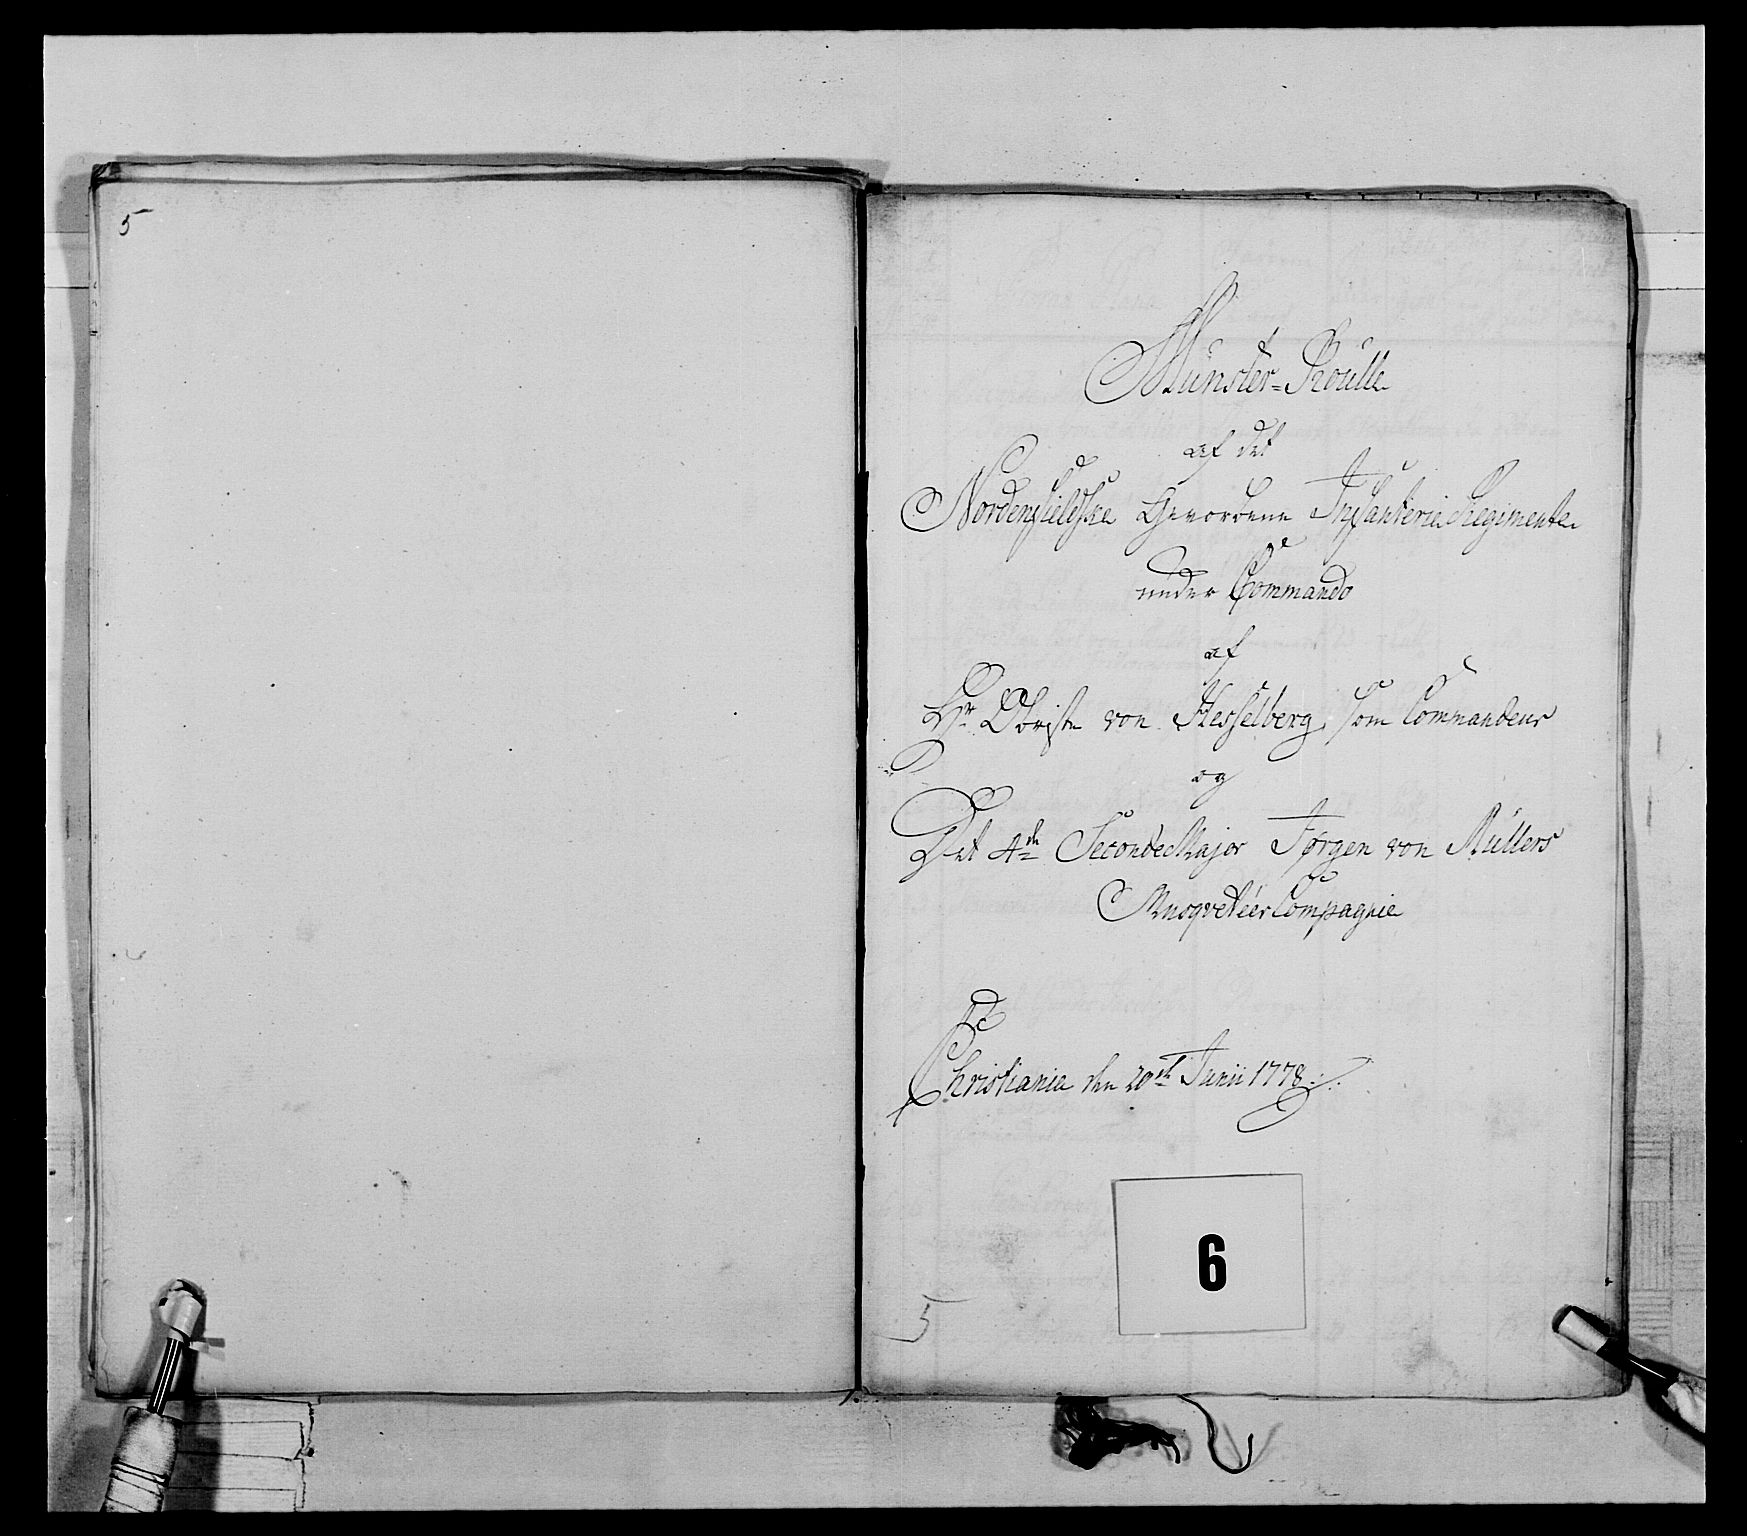 5
Münster-Roulle
af det
Nordenfieldske Gevorbene Infanterie Regimente
under Commando
af
Hr. Obriste von Hesselberg, som Commandeur
og
Det 4de Seconde Major Jørgen von Müllers
Musqveteer Compagnie
Christiania den 20de Junii 1778.
6
5